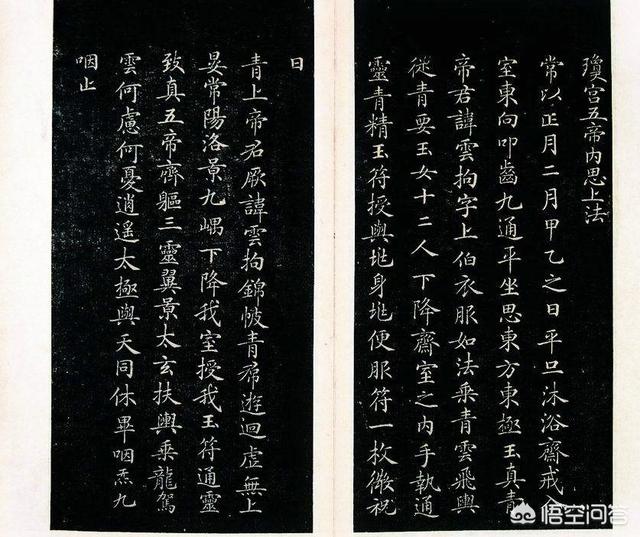 瓊宮五帝內思上法
常以正月二月甲乙之日平旦沐浴齋戒入
室東向叩齒九通平坐思東方東極玉真青
帝君諱雲拘字上伯衣服如法乘青雲飛輿
從青要玉女十二人下降齋室之內手執通
靈青精玉符授與兆身兆便服符一枚微祝
曰
青上帝君厥諱雲拘錦帔青帬遊迴虛無上
晏常陽洛景九嵎下降我室授我玉符通靈
致真五帝齊軀三靈翼景太玄扶輿乘龍駕
雲何慮何憂逍遙太極與天同休畢咽炁九
咽止
悟空问答